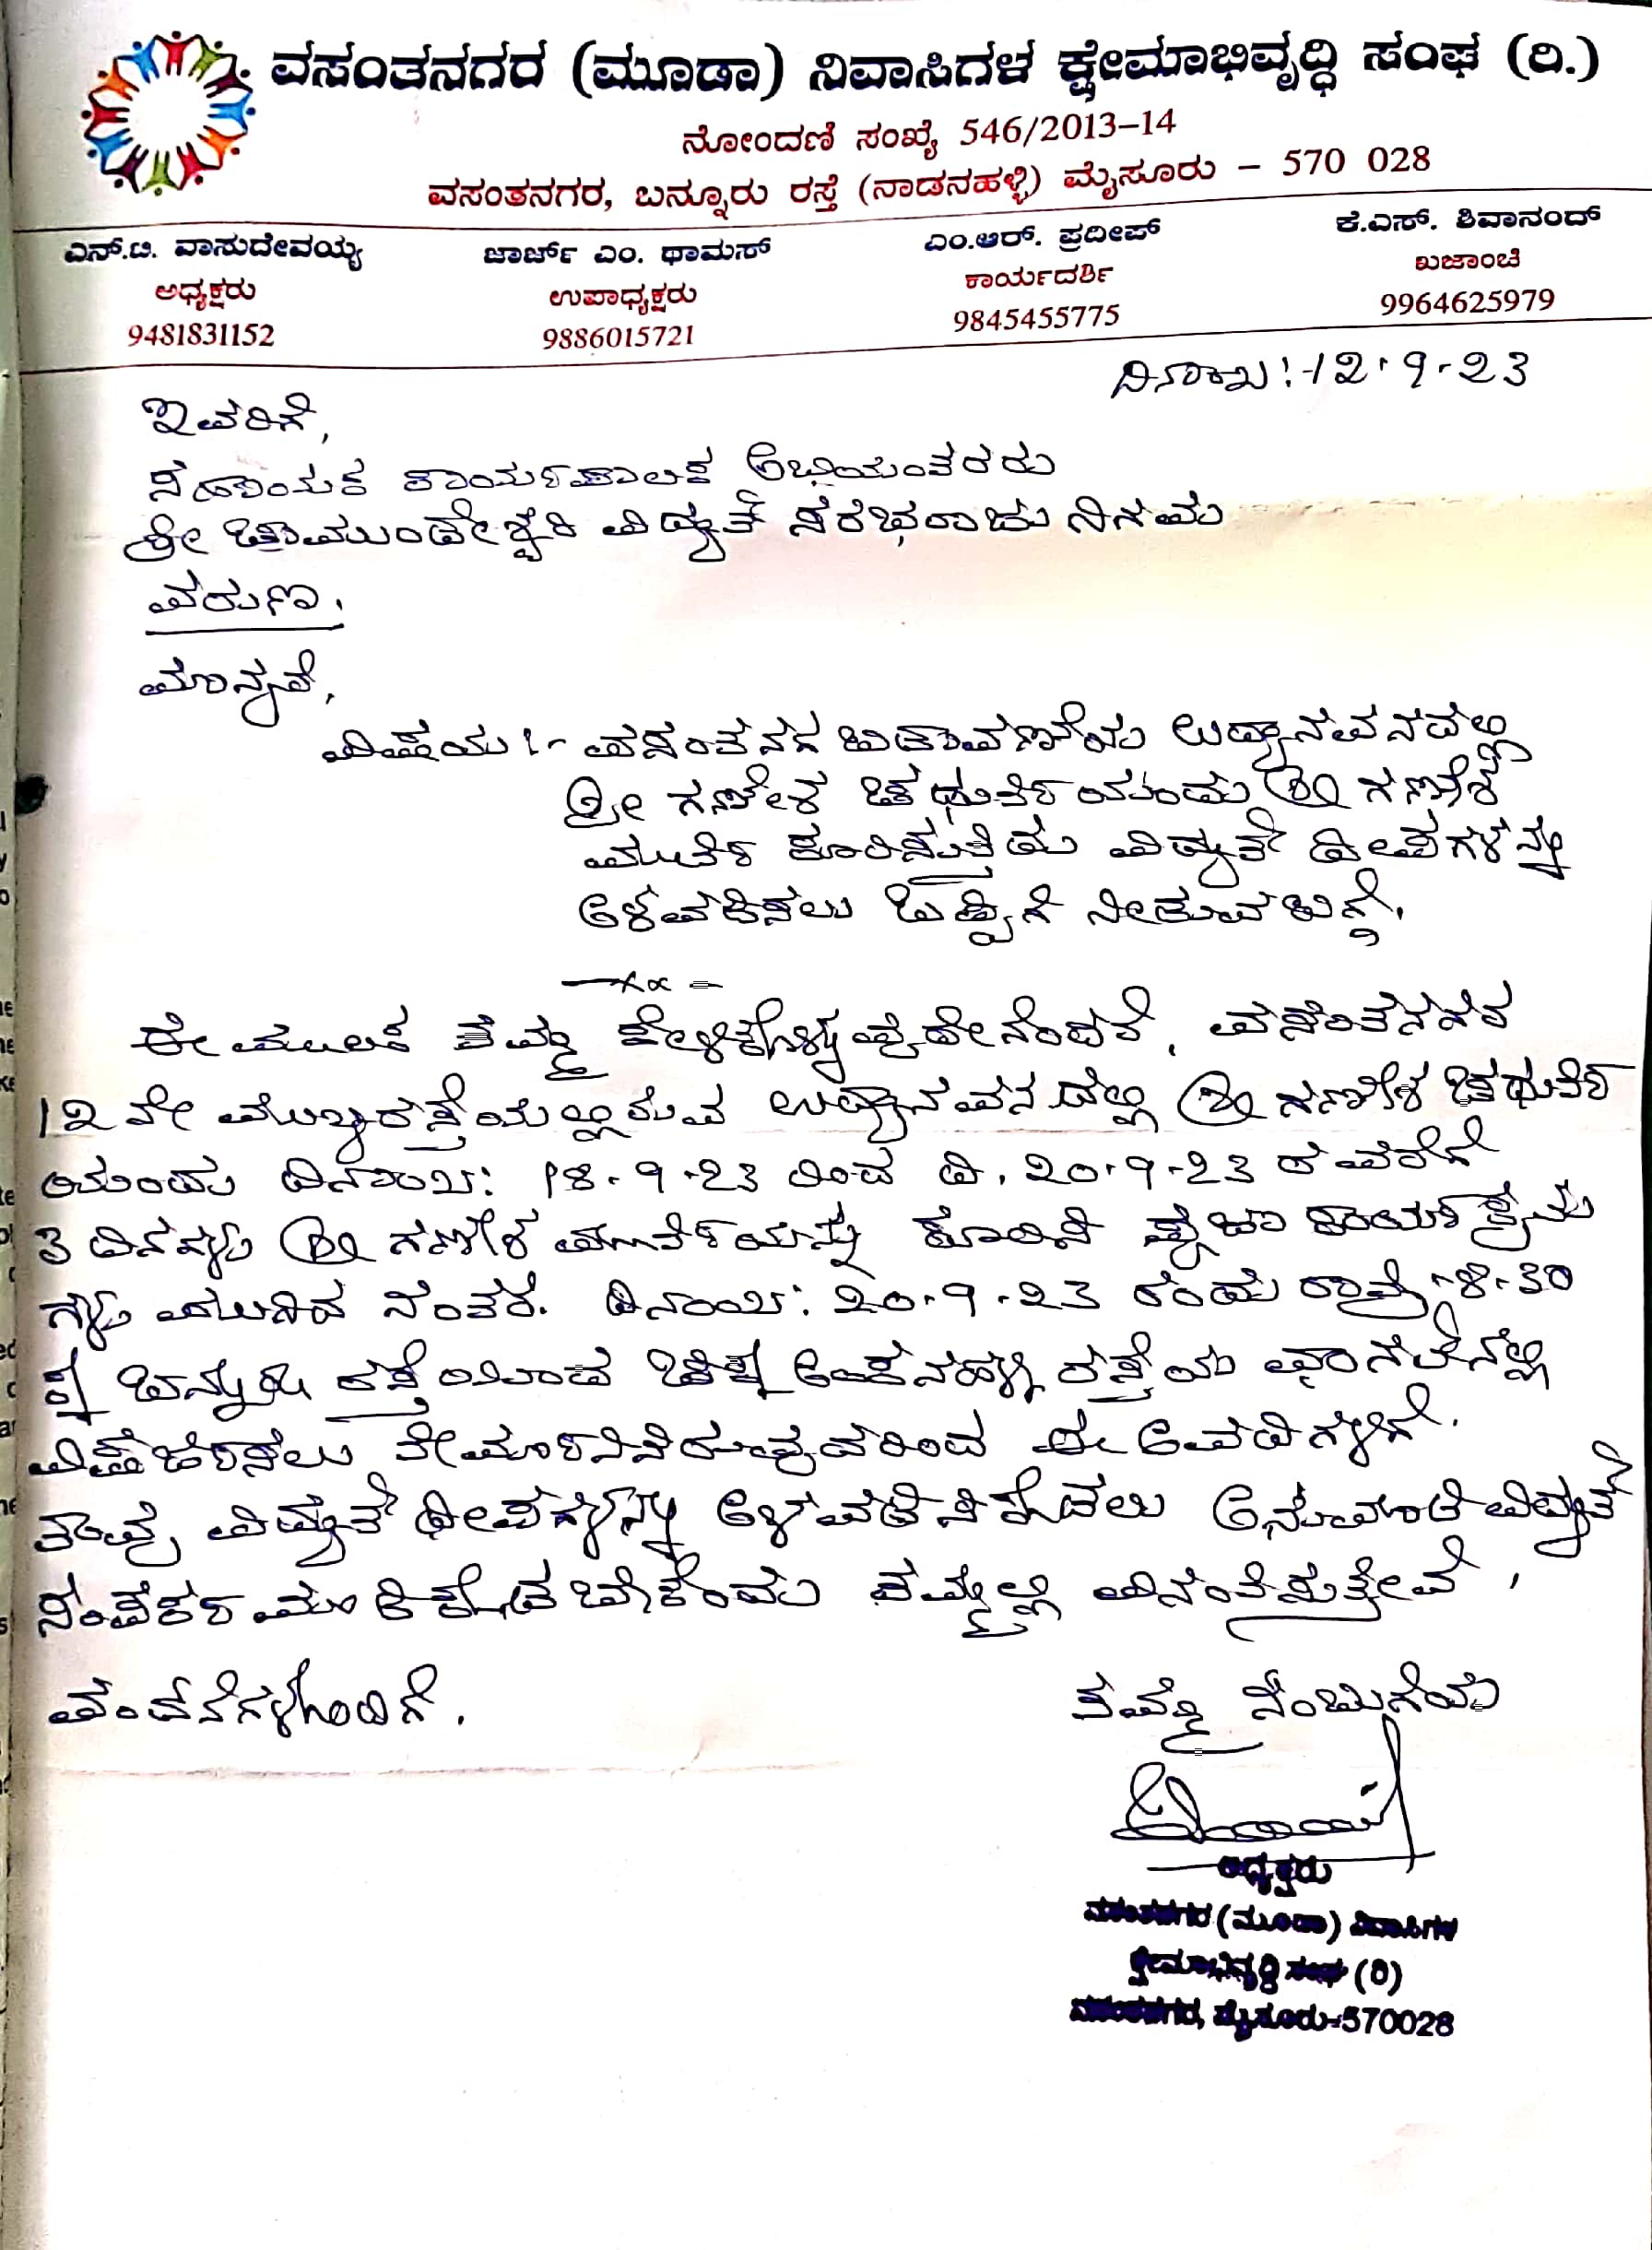 ವಸಂತನಗರ (ಮೂಡಾ) ನಿವಾಸಿಗಳ ಕ್ಷೇಮಾಭಿವೃದ್ಧಿ ಸಂಘ (ರಿ.)
ನೋಂದಣಿ ಸಂಖ್ಯೆ 546/2013–14
ವಸಂತನಗರ, ಬನ್ನೂರು ರಸ್ತೆ (ನಾಡನಹಳ್ಳಿ) ಮೈಸೂರು – 570 028
ಎನ್.ಟಿ. ವಾಸುದೇವಯ್ಯ ಜಾರ್ಜ್ ಎಂ. ಥಾಮಸ್ ಎಂ.ಆರ್. ಪ್ರದೀಪ್ ಕೆ.ಎಸ್. ಶಿವಾನಂದ್
ಅಧ್ಯಕ್ಷರು ಉಪಾಧ್ಯಕ್ಷರು ಕಾರ್ಯದರ್ಶಿ ಖಜಾಂಚಿ
9481831152 9886015721 9845455775 9964625979
ದಿನಾಂಖ:-12.9.23
ಇವರಿಗೆ,
ಸಹಾಯಕ ಕಾರ್ಯಪಾಲಕ ಅಭಿಯಂತರರು
ಶ್ರೀ ಚಾಮುಂಡೇಶ್ವರಿ ವಿದ್ಯುತ್ ಸರಭರಾಜು ನಿಗಮ
ವರುಣಾ.
ಮಾನ್ಯರೆ,
ವಿಷಯ:- ವಸಂತನಗ ಬಡಾವಣೆಯ ಉದ್ಯಾನವನದಲ್ಲಿ
ಶ್ರೀ ಗಣೇಶ ಚತುರ್ಥಿಯಂದು ಶ್ರೀ ಗಣೇಶ
ಮುರ್ತಿ ಕೂರಿಸುತ್ತಿದ್ದು ವಿದ್ಯುತ್ ದೀಪಗಳನ್ನು
ಅಳವಡಿಸಲು ಒಪ್ಪಿಗೆ ನೀಡುವ ಬಗ್ಗೆ.
ಈ ಮೂಲಕ ತಮ್ಮಲ್ಲಿ ಕೇಳಿಕೊಳ್ಳುವುದೇನೆಂದರೆ, ವಸಂತನಗರ
12 ನೇ ಮುಖ್ಯರಸ್ತೆಯಲ್ಲಿರುವ ಉದ್ಯಾನವನದಲ್ಲಿ ಶ್ರೀ ಗಣೇಶ ಚತುರ್ಥಿ
ಯಂದು ದಿನಾಂಖ: 18.9.23 ರಿಂದ ದಿ. 20.9.23 ರ ವರೆಗೆ
3 ದಿನಗಳು ಶ್ರೀ ಗಣೇಶ ಮುರ್ತಿಯನ್ನು ಕೂರಿಸಿ ಪೂಜಾ ಕಾರ್ಯಕ್ರಮ
ಗಳು ಮುಗಿದ ನಂತರ. ದಿನಾಂಖ: 20.9.23 ರಂದು ರಾತ್ರಿ 8-30
ಕ್ಕೆ ಬನ್ನೂರು ರಸ್ತೆಯಿಂದ ರಸ್ತೆಯ
ವಿಸರ್ಜಿಸಲು ತೀರ್ಮಾನಿಸಿರುವುದರಿಂದ ಈ ಅವಧಿಗಳಿಗೆ.
ನಾವು ವಿದ್ಯುತ್ ದೀಪಗಳನ್ನು ಅಳವಡಿಸಿಕೊಳ್ಳಲು ಅನುಮತಿ ವಿದ್ಯುತ್
ಸಂಪರ್ಕ ಮಾಡಿಕೊಡಬೇಕೆಂದು ತಮ್ಮಲ್ಲಿ ವಿನಂತಿಸುತ್ತೇವೆ,
ವಂದನೆಗಳೊಂದಿಗೆ. ತಮ್ಮ ನಂಬುಗೆಯ
ಅಧ್ಯಕ್ಷರು
ವಸಂತನಗರ (ಮೂಡಾ) ನಿವಾಸಿಗಳ
ಕ್ಷೇಮಾಭಿವೃದ್ಧಿ ಸಂಘ (ರಿ)
ವಸಂತನಗರ, ಮೈಸೂರು-570028